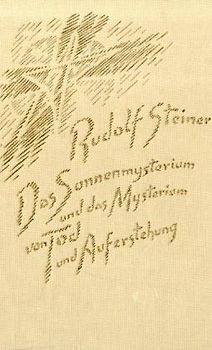 Rudolf Steiner
Das Sonnenmysterium
und das Mysterium
von Tod
und Auferstehung